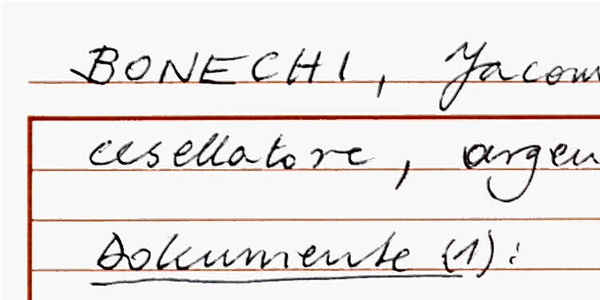 BONECHI, Jacom
cesellatore, argen
Dokumente (1):